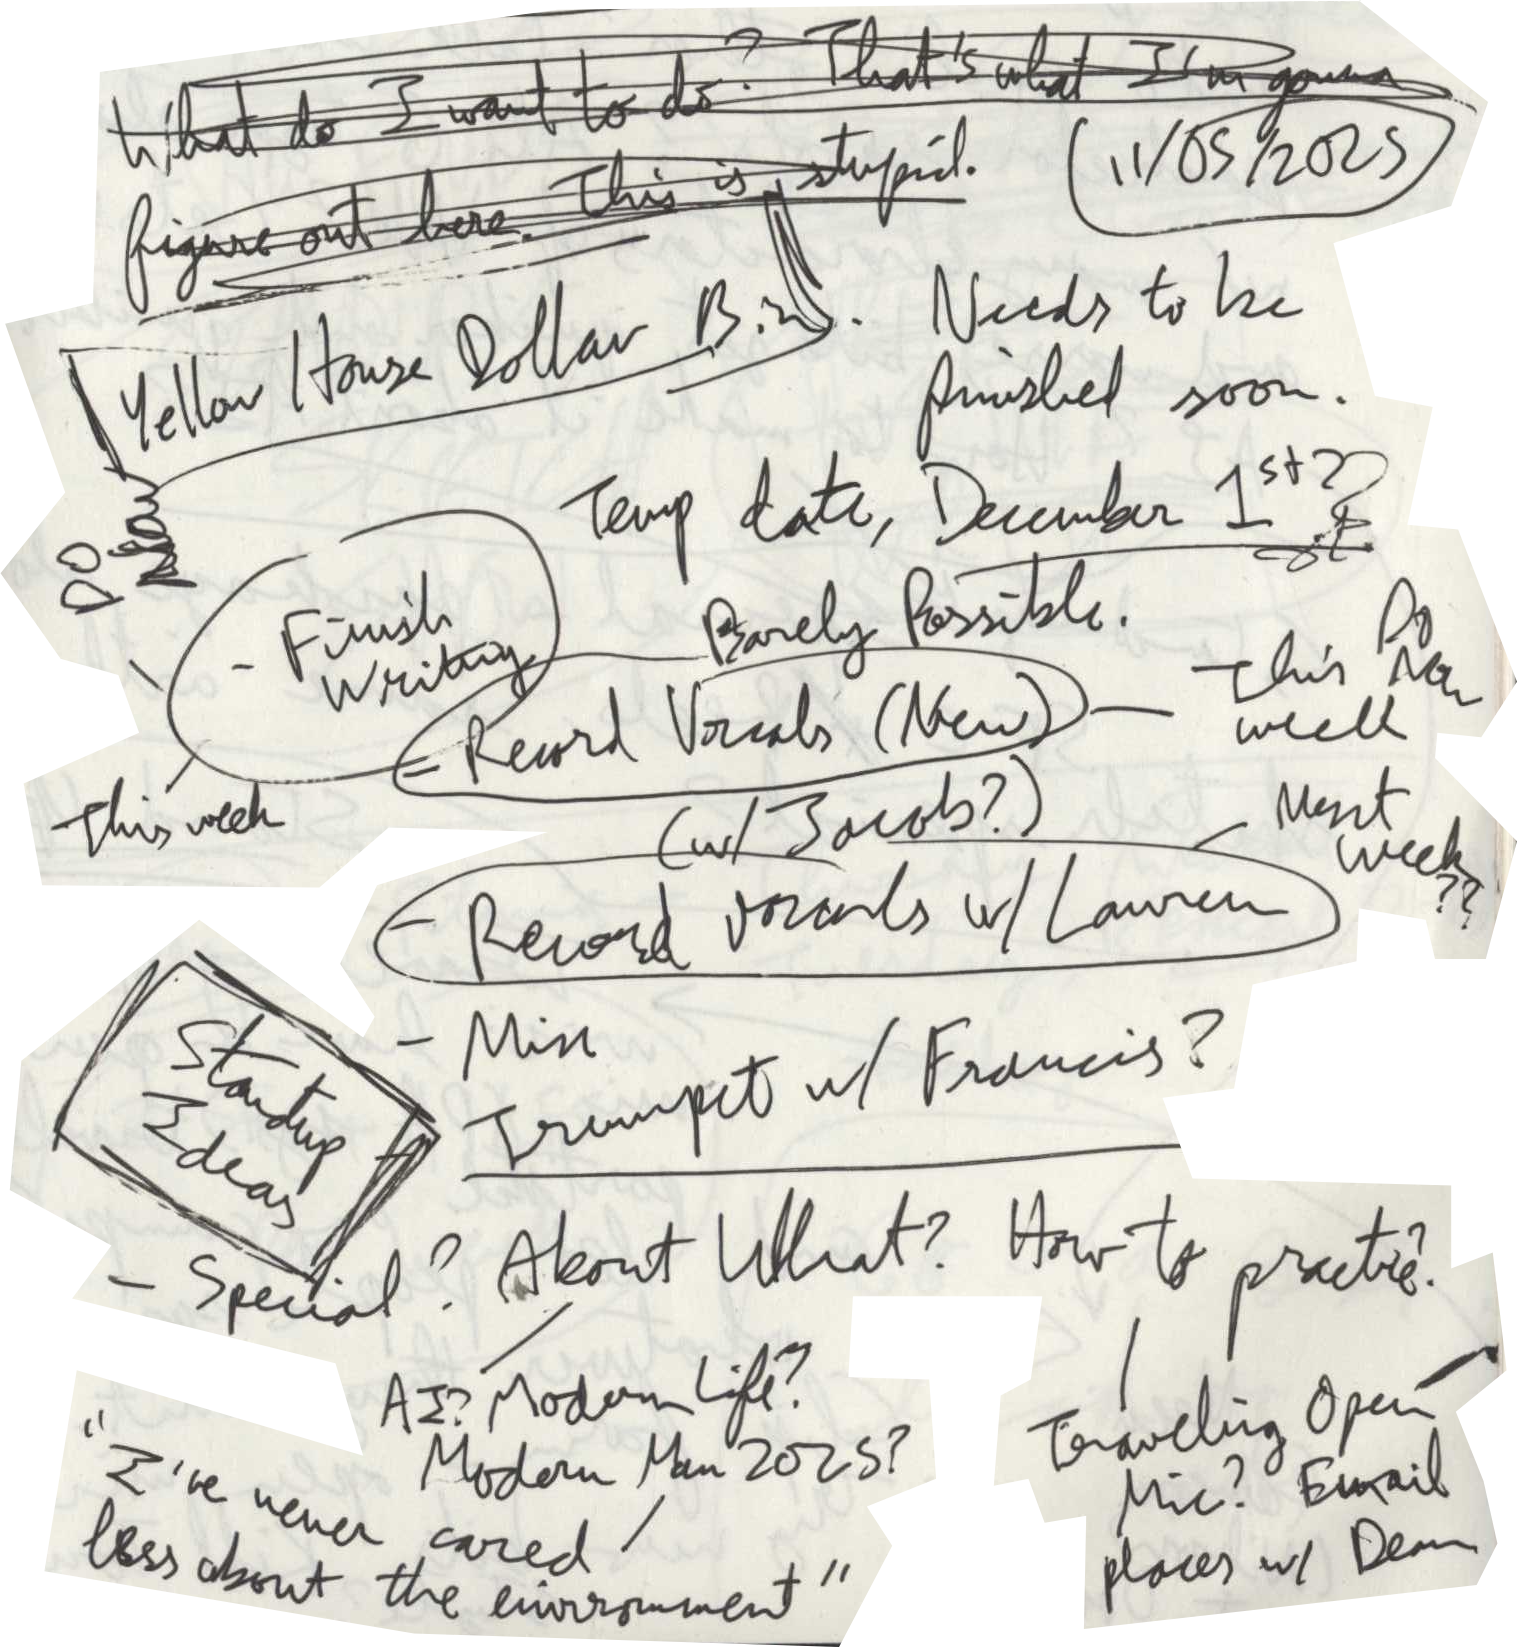 What do I want to do? That's what I'm gonna
figure out here. This is stupid.
11/05/2025
Yellow House Dollar Bin.
Needs to be
finished soon.
Temp date, December 1st??
Do
Now
- Finish
Writing
This week
Barely Possible.
- Record Vocals (New) -
This
week
Do
Now
(w/ Jacob?)
- Record vocals w/ Lauren
Next
week
??
- Mix
Trumpet w/ Francis?
Standup
Ideas
- Special? About What? How to practice?
AI? Modern Life?
Modern Man 2025?
"I've never cared
less about the environment"
Traveling Open
Mic? Email
places w/ Dean